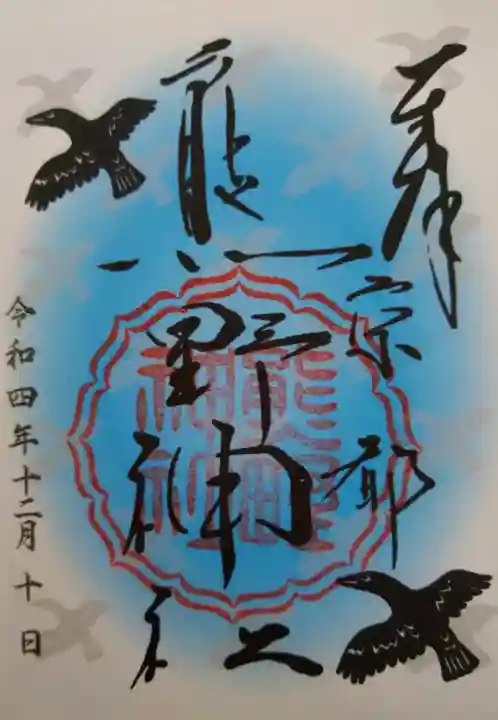 奉拝
京都
熊野神社
熊野神社
令和四年十二月十日